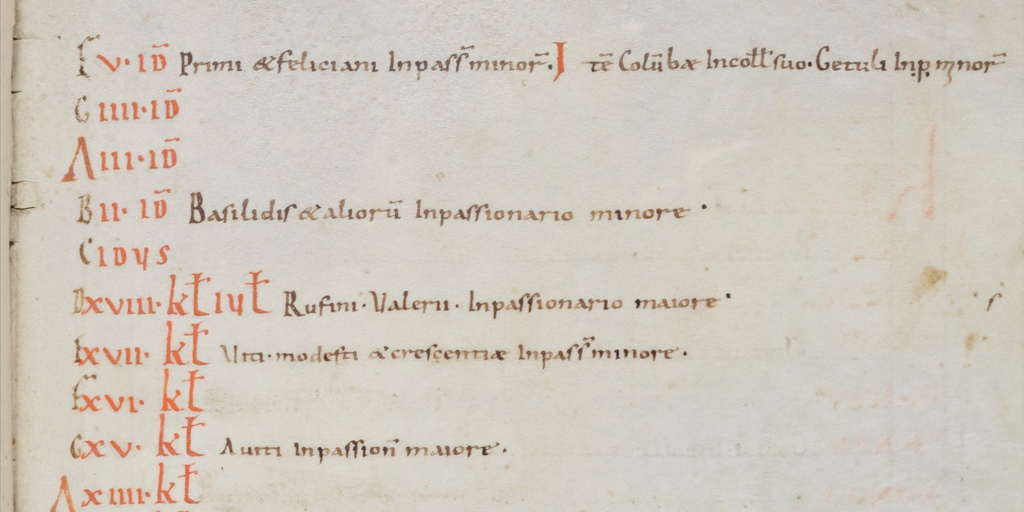 F v · id̄ Primi & feliciani Inpass̄ minor̄ . I tē Colūbæ Incoll̄ suo · Getuli Inp̄ minor̄
G iiii · id̄
A iii · id̄
B ii · id̄ Basilidis & aliorū Inpassionario minore ·
C idus
D xviii · kł iuł Rufini · Valerii · Inpassionario maiore ·
E xvii · kł Viti · modesti & crescentiæ Inpass̄ minore .
F xvi · kł
G xv · kł Auiti Inpassion̄ maiore .
A xiiii · kł